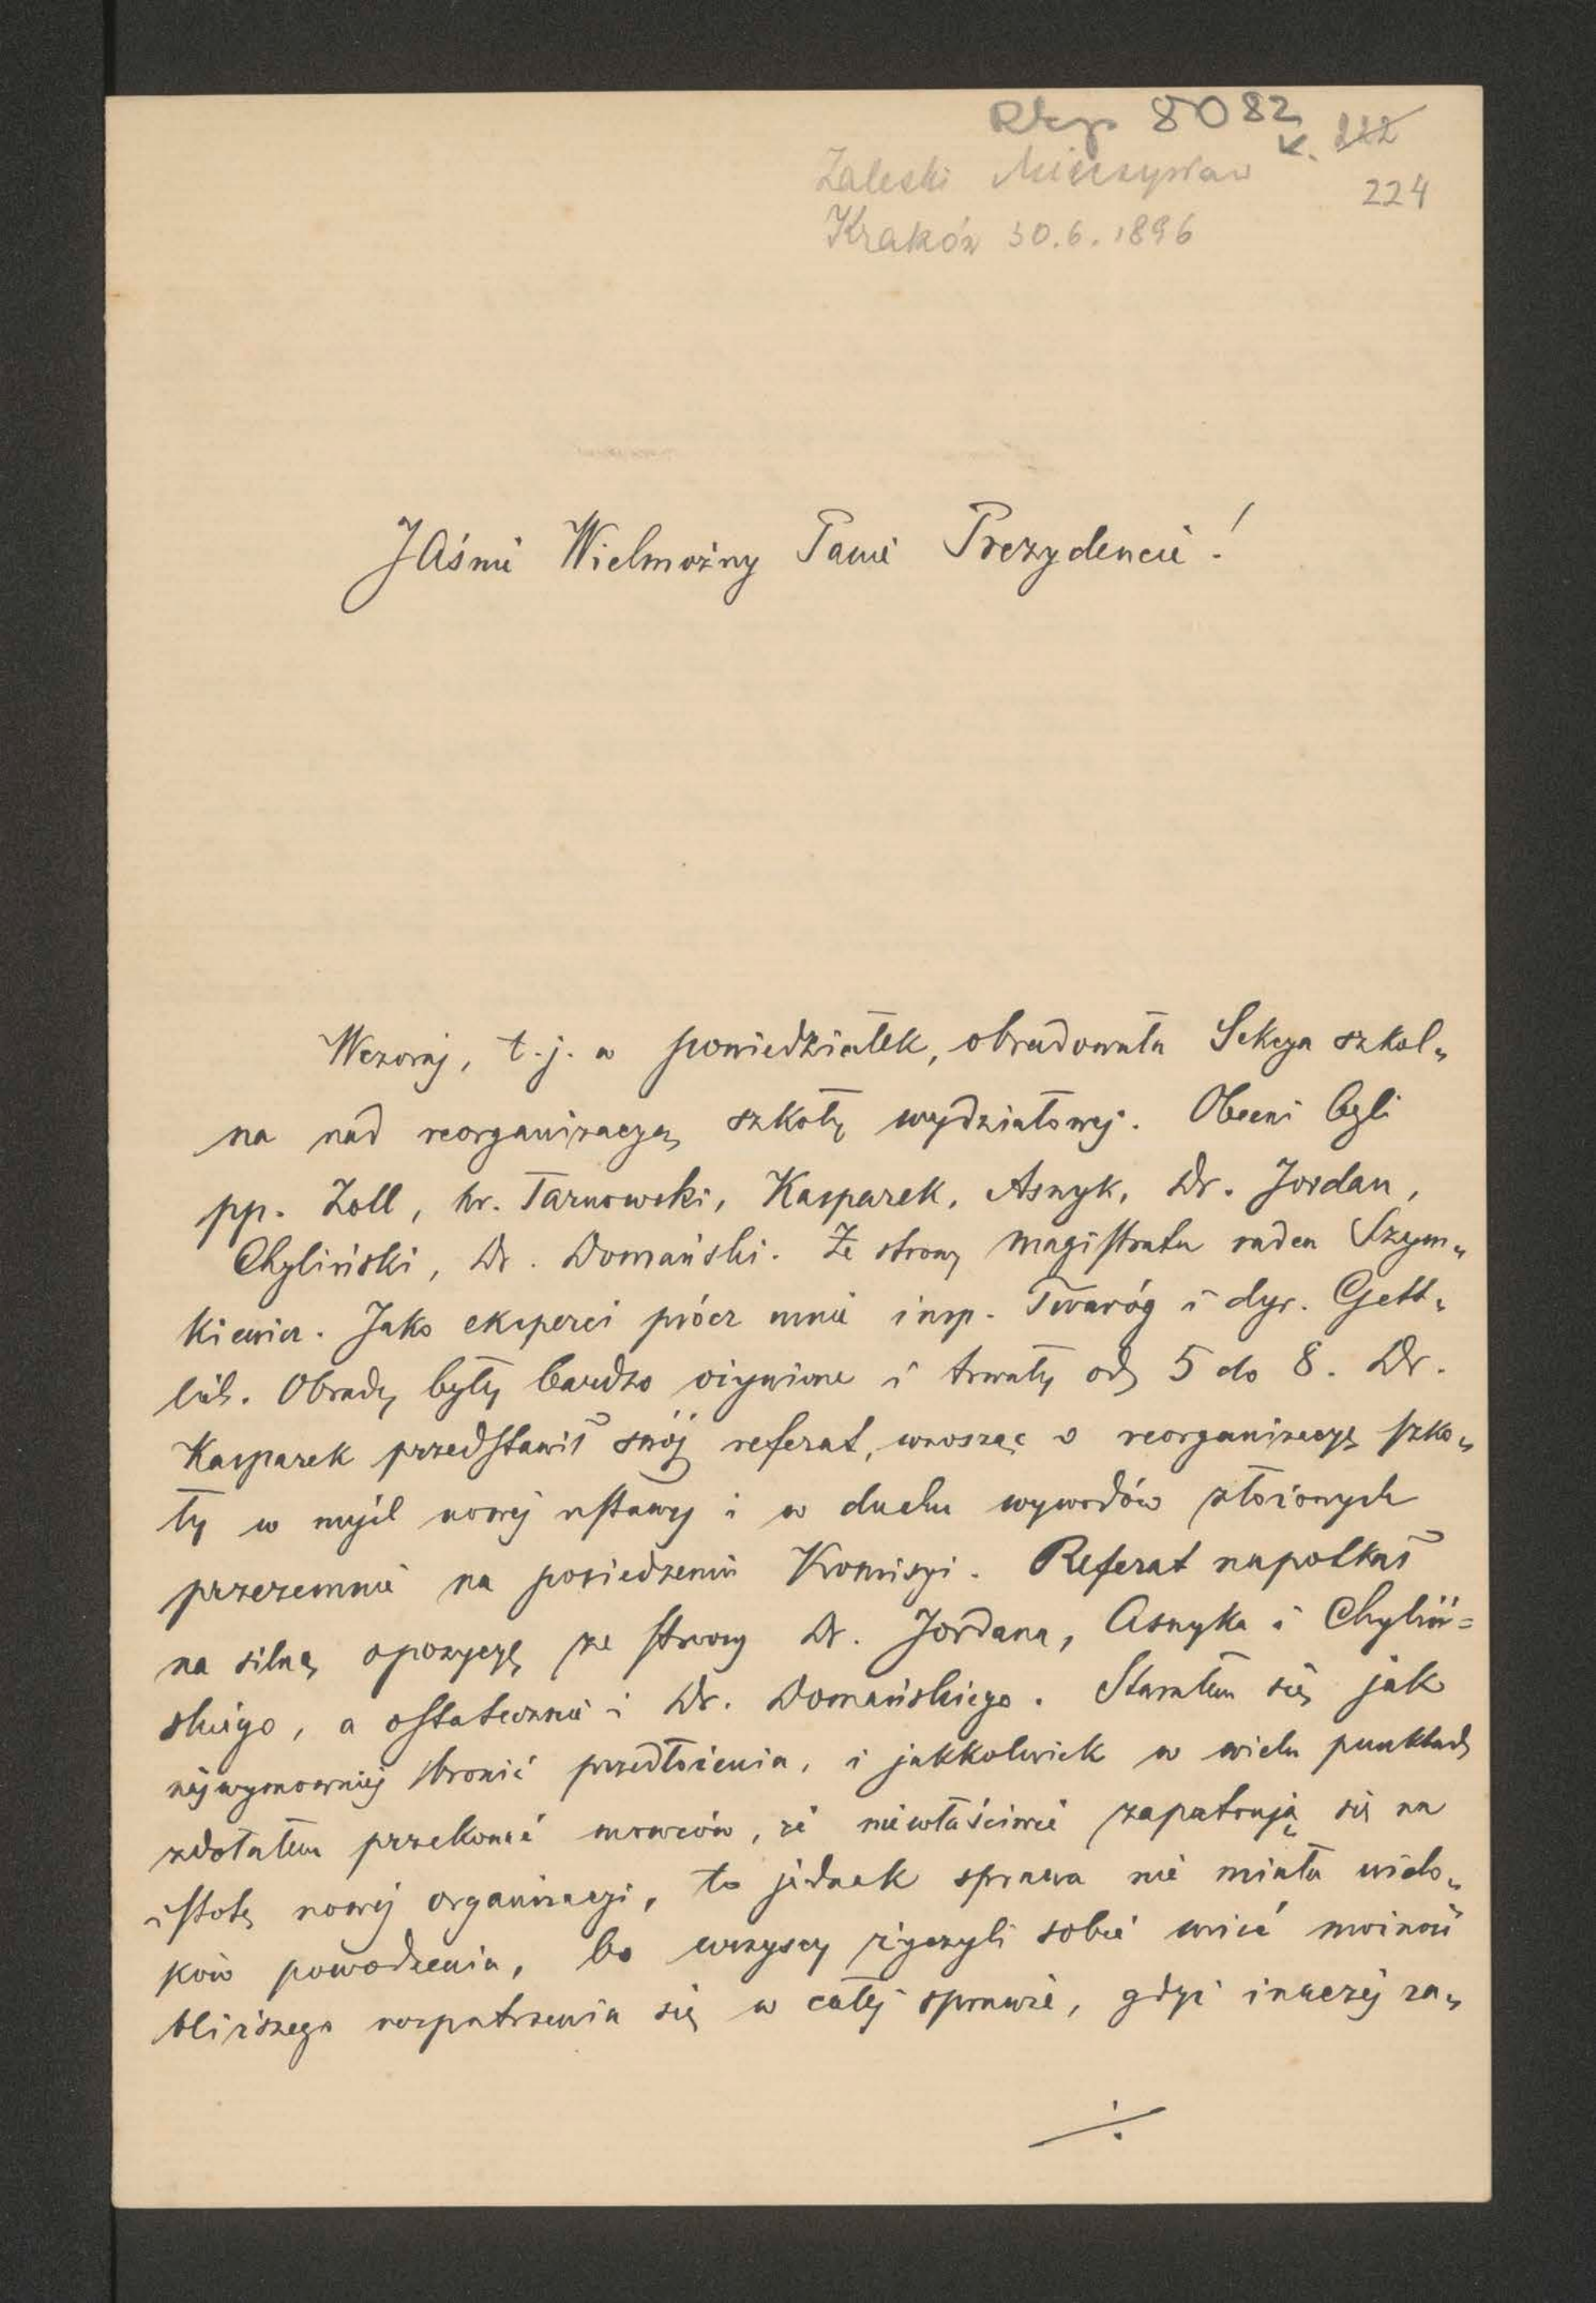 Rkp 8082
k. 212
Zaleski Mieczysław
224
Kraków 30.6.1896
JAśnie Wielmożny Panie Prezydencie!
Wczoraj, t.j. w poniedziałek, obradowała Sekcya szkol„
na nad reorganizacyą szkoły wydziałowej. Obecni byli
pp. Zoll, hr. Tarnowski, Kasparek, Asnyk, Dr. Jordan,
Chyliński, Dr. Domański. Ze strony magistratu radca Szym„
kiewicz. Jako eksperci prócz mnie insp. Twaróg i dyr. Gett„
lich. Obrady były bardzo ożywione i trwały od 5 do 8. Dr.
Kasparek przedstawił swój referat, wnosząc o reorganizacyę szko„
ły w myśl nowej ustawy i w duchu wywodów złożonych
przezemnie na posiedzeniu Komisyi. Referat napotkał
na silną opozycyę ze strony Dr. Jordana, Asnyka i Chyliń=
skiego, a ostatecznie i Dr. Domańskiego. Starałem się jak
najwymowniej bronić przedłożenia, i jakkolwiek w wielu punktach
zdołałem przekonać mowców, że niewłaściwie zapatrują się na
istotę nowej organizacyi, to jednak sprawa nie miała wido„
ków powodzenia, bo wszyscy życzyli sobie mieć możność
bliższego rozpatrzenia się w całej sprawie, gdyż inaczej za„
./.